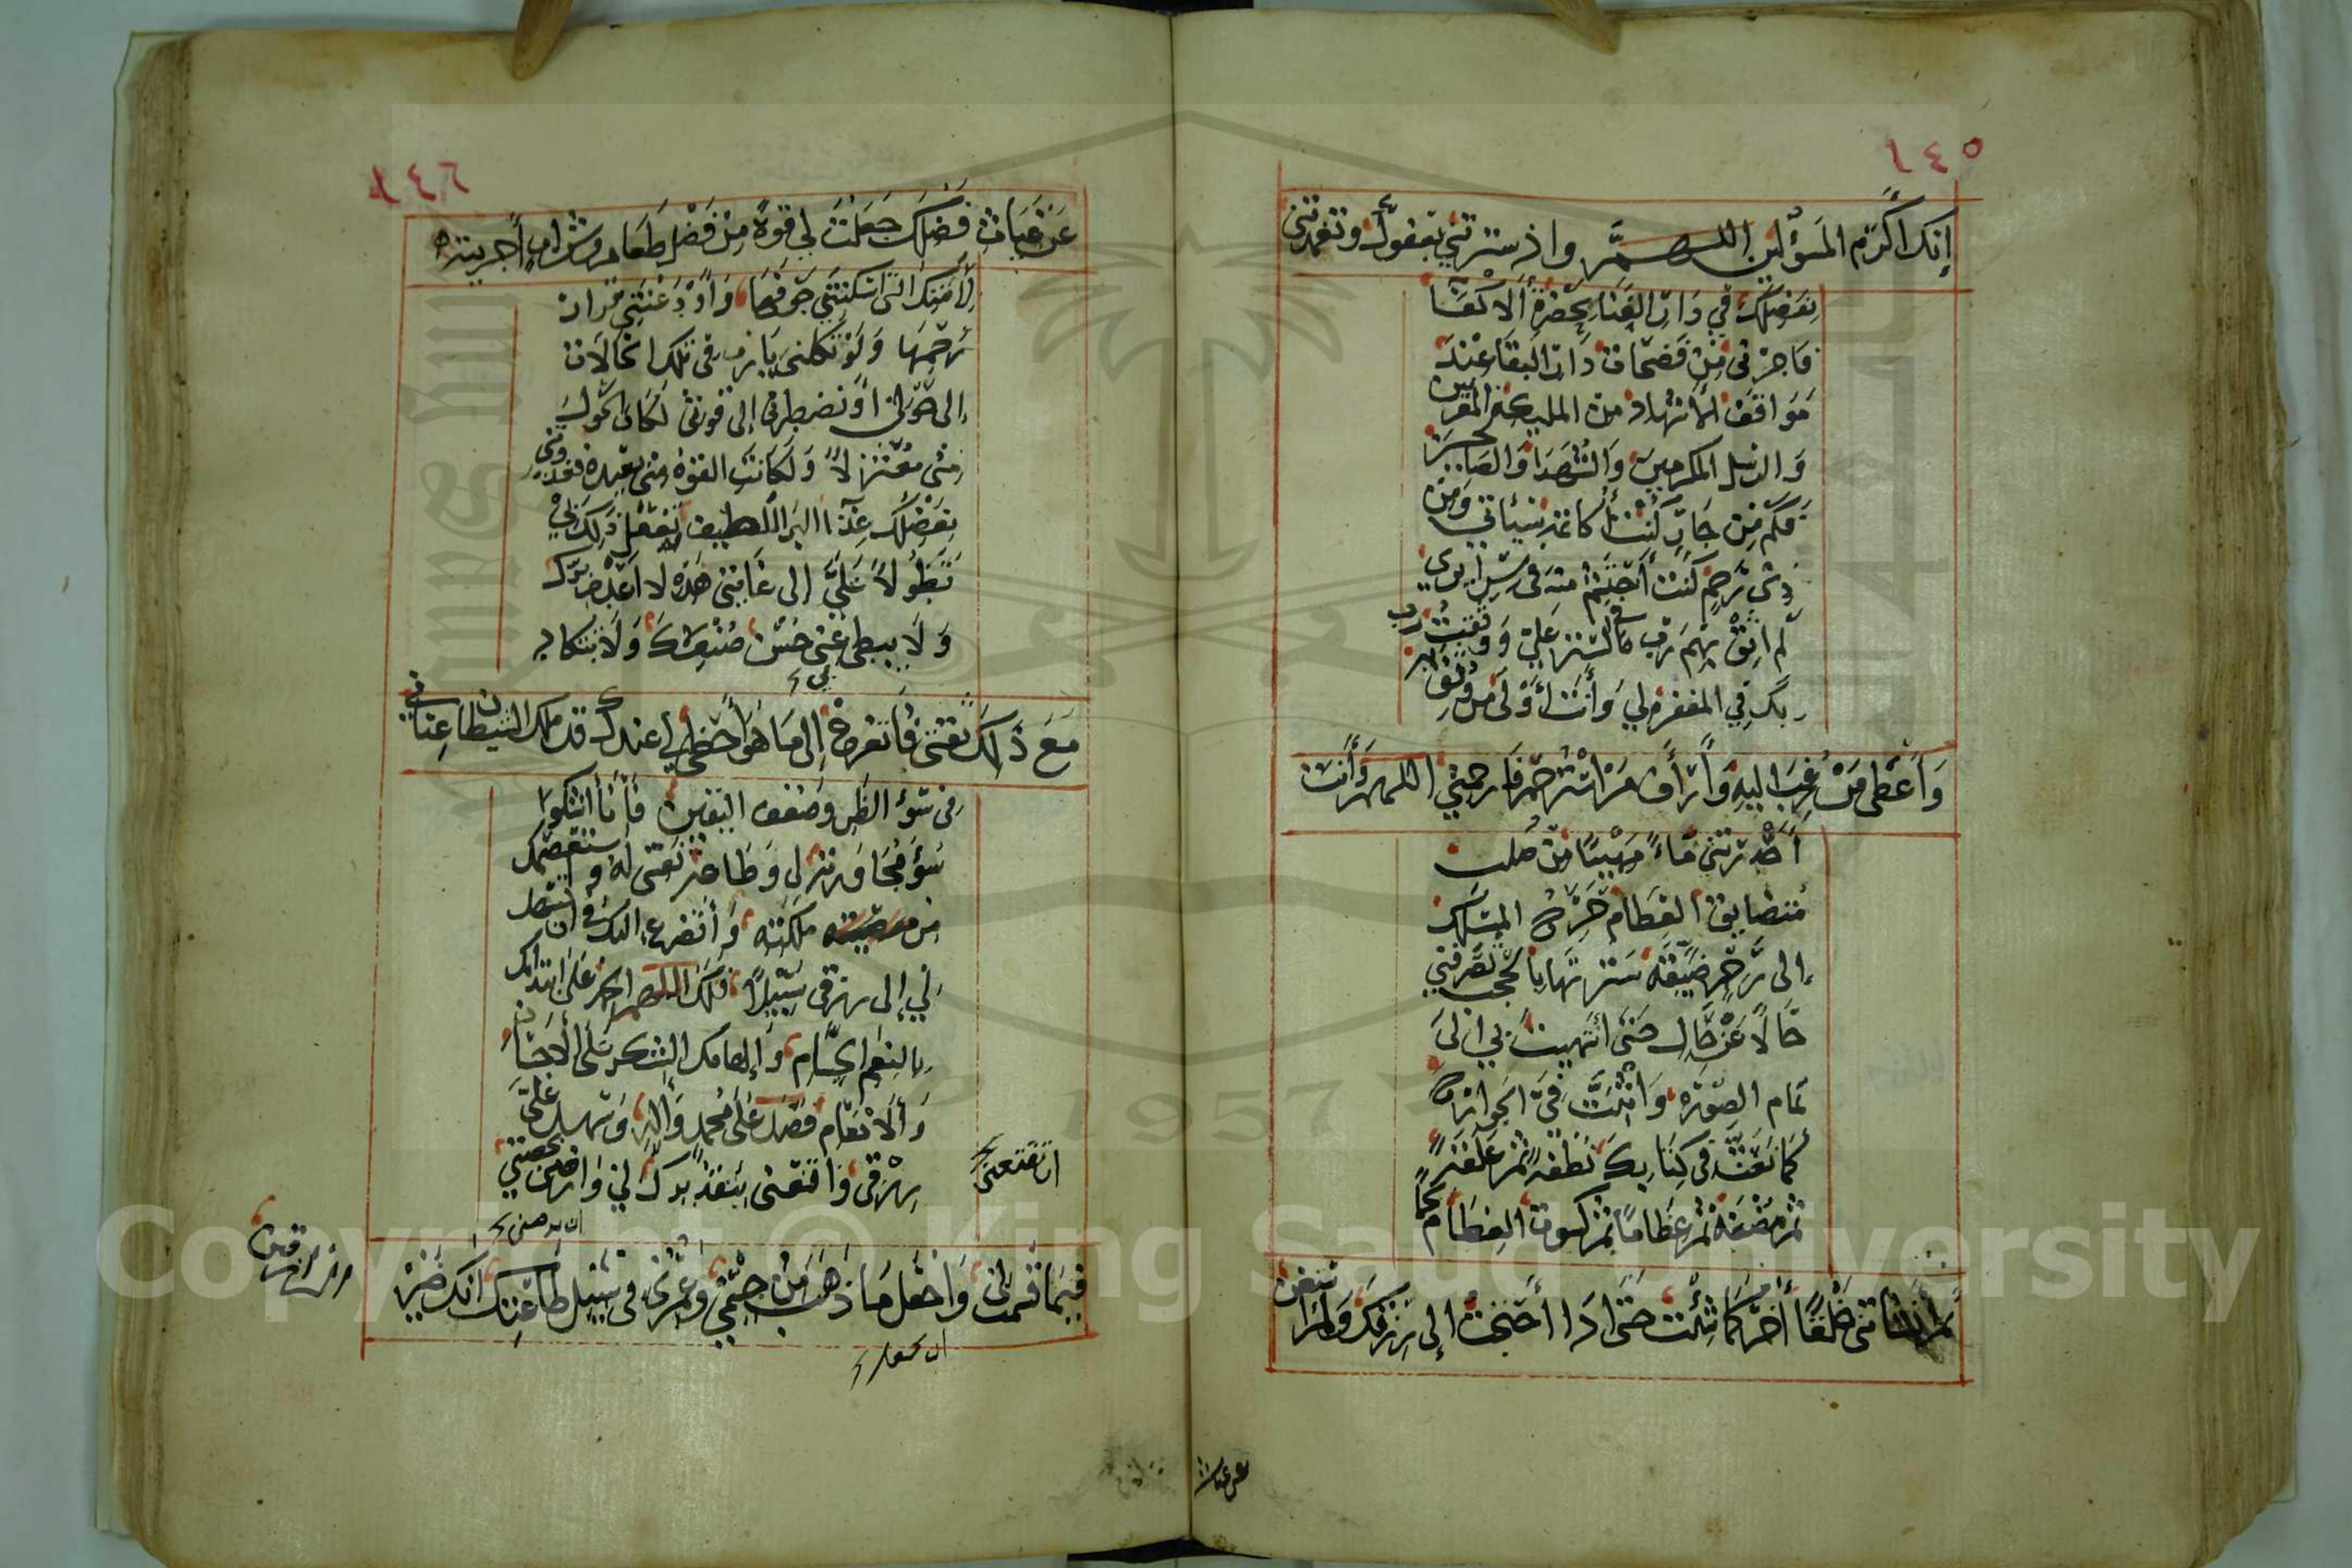 ١٤٥
إِنك أَكرَم المَسؤُلين اللهمَّ واذ سترتني بعفوك وتغمدتني
بِفَضلِكَ في دَارِ الفَنا بِحَضرةِ الاكفا
فاجرنى مِن فَضحات دَار البَقا عِندَ
مَواقف الاشهاد من المليكة المقربين
وَالرسل المكرمينَ وَالشُهَدا وَالصالحين
فكَم مِن جَارٍ كنتُ أكاتمه سَيئاتي وَمِن
ذي رَحِمٍ كنت أحتَشِمُ منه في سَريراتي
لم اثِق بهم رَب في الستر علي وَوثقتُ رب
بكَ في المغفره لي وَأنتَ أولى من وُثِق به
وَأَعطى مَن رُغِبَ اليهِ وَأرأف من استُرحم فارحمني اللهم وَأَنت
أحدرتني مَاءً مَهينًا مِن صُلب
متضايق العظام حَرج المسَالك
إلى رَحِمٍ ضَيقَة سَترتهَا بالحجب تصرفني
حَالًا عَن حَالٍ حَتى انتهيتَ بي إلى
تمام الصورَه وَأثبتَّ فيَّ الجوارح
كما نَعَتَّ في كتابِكَ نطفة ثم علقة
ثم مضغة ثم عظامًا ثم كسوت العظام لحمًا
ثم أنشاتني خَلقًا آخر كما شِئت حَتى اذا احتَجتُ إلى رِزقِك وَلم استغن
عن غياث
١٤٦
عَن غِيَاث فَضلِكَ جَعَلتَ لي قوةً مِن فَضلِ طَعامٍ وشرابٍ أَجريته
لأمَتِكَ التي اسكنتَني جَوفهَا وَأودَعتَني قرار
رَحمِهَا وَلَو تكلنى يَا رب في تلك الحالات
إلى حَولي أو تضطرنى إلى قوتى لكان الحول
عني معتزلًا وَلكانَت القوة مني بعيدة فغذوتني
بِفَضلِكَ غِذاا البَر اللطيف تفعل ذلك بي
تَطَوُّلًا عَلَيَّ إلى غايتي هَذه لا اعدم برك
وَلا يبطي عني حُسن صَنيعك وَلا تتاكد
مَعَ ذَلِكَ ثقتي فَأتفرغ إلى مَا هوَ أحظى لي عندك قد ملك الشيطان عِناني
في سؤ الظَن وضعف اليَقين فَأَنا اشكوا
سُؤ مُجَاوَرته لي وَطَاعَة نَفسي له وَأستعصِمك
مِن ملكته وَأتضرع إليك في أن تسهل
لي إلى رزقي سَبيلًا فلَكَ اللهم الحمد عَلى ابتدائك
بِالنِعمِ الجسَام وَإلهامك الشكر عَلى الاحسان
وَالانعام فصَل على محمدٍ وَآلهِ وَسهل عَليَّ
رزقي وَاقنعني بِتقديرك لي وَارضني بحصتي
ان تقنعني
ان ترضيني
فِيمَا قسَمت لي وَاجعَل مَا ذَهَبَ مِن جِسمي وَعُمري في سَبيل طَاعَتِك انكَ خَيرُ
ان تجعل
الرازقين